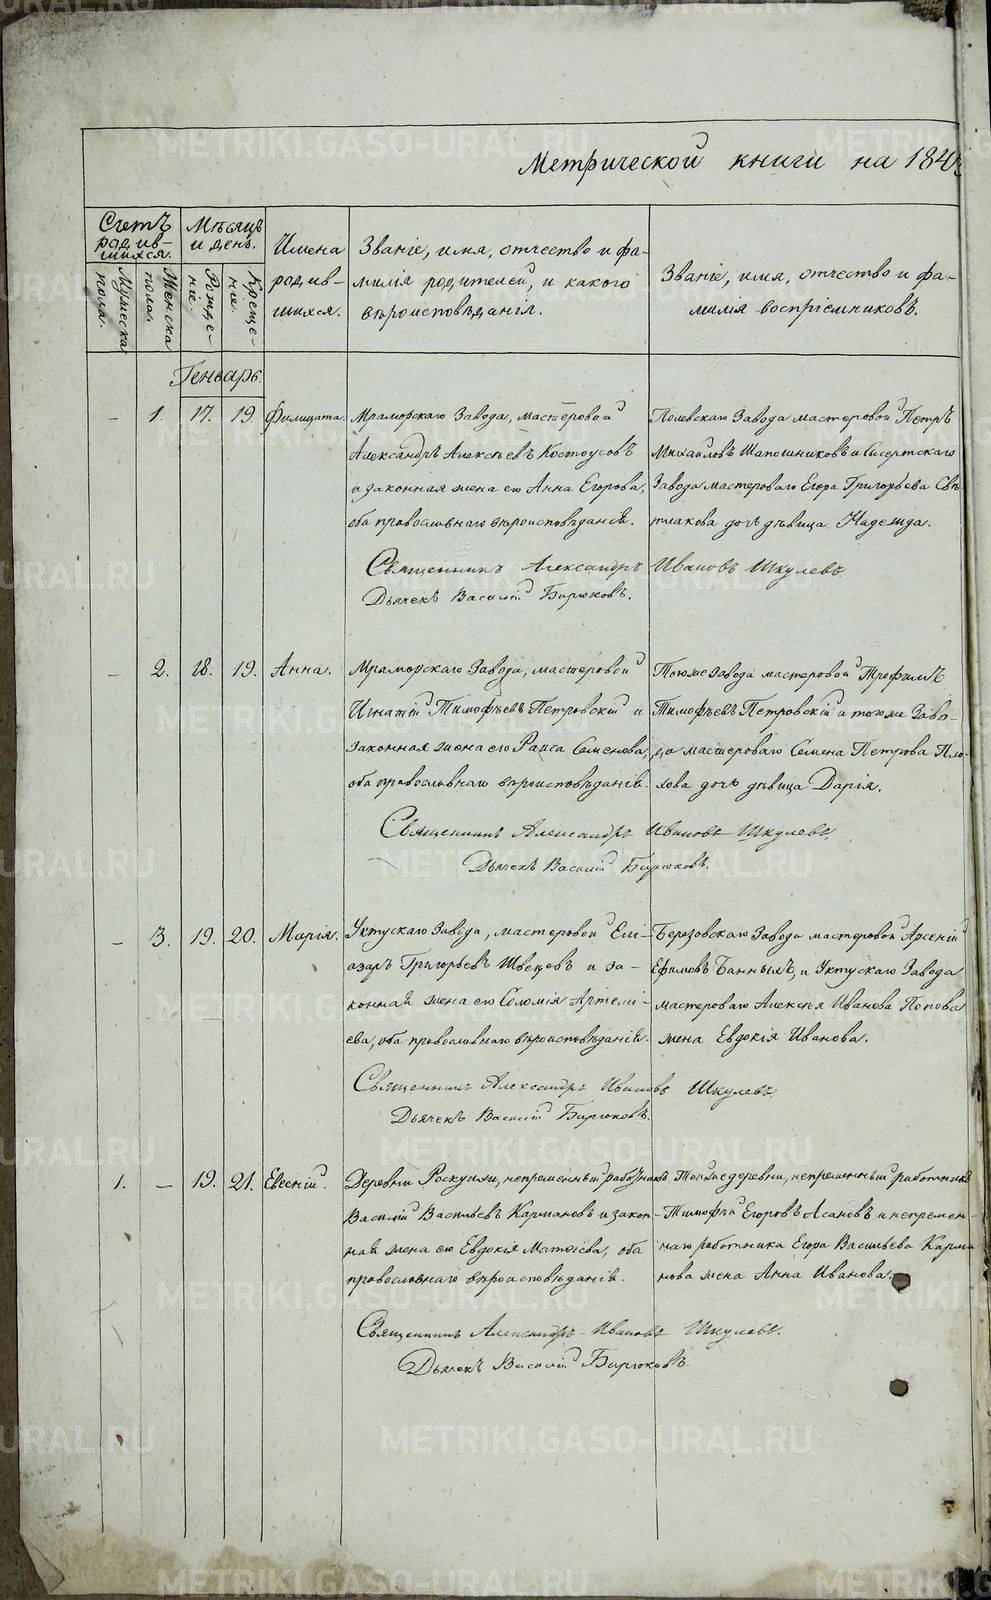 Метрической книги на 184
Счетъ
родив-
шихся.
Мужеска
пола.
Женска
пола.
Мѣсяцъ
и день.
Рожде-
ніе.
Креще-
ніе.
Имена
родив-
шихся.
Званіе, имя, отчество и фа-
милія родителей, и какого
вѣроисповѣданія.
Званіе, имя, отчество и фа-
милія воспріемниковъ.
Генварь.
– 1. 17. 19. Филицата.
Мраморскаго Завода, мастеровой
Александръ Алексѣевъ Костоусовъ
и законная жена его Анна Егорова,
оба православнаго вѣроисповѣданія.
Полевскаго Завода мастеровой Петръ
Михайловъ Шапошниковъ и Сысертскаго
Завода мастероваго Егора Григорьева Свѣ-
тлакова дочь дѣвица Надежда.
Священникъ Александръ Ивановъ Шкулевъ.
Дьячекъ Василій Бирюковъ.
– 2. 18. 19. Анна.
Мраморскаго Завода, мастеровой
Игнатій Тимофѣевъ Петровскій и
законная жена его Раиса Семенова,
оба православнаго вѣроисповѣданія.
Тогоже Завода мастеровой Трофимъ
Тимофѣевъ Петровскій и тогоже Заво-
да мастероваго Семена Петрова Пло-
хова дочь дѣвица Дарія.
Священникъ Александръ Ивановъ Шкулевъ.
Дьячекъ Василій Бирюковъ.
– 3. 19. 20. Марія.
Уктускаго Завода, мастеровой Елі-
азаръ Григорьевъ Швецовъ и за-
конная жена его Соломія Артемі-
ева, оба православнаго вѣроисповѣданія.
Березовскаго Завода мастеровой Арсеній
Ефимовъ Банныхъ, и Уктускаго Завода
мастероваго Алексѣя Иванова Попова
жена Евдокія Иванова.
Священникъ Александръ Ивановъ Шкулевъ.
Дьячекъ Василій Бирюковъ.
1. – 19. 21. Евгеній.
Деревни Роскухи, непремѣнный работникъ
Василій Васильевъ Кармановъ и закон-
ная жена его Евдокія Матѳіева, оба
православнаго вѣроисповѣданія.
Тойже деревни, непремѣнный работникъ
Тимофѣй Егоровъ Асановъ и непремѣн-
наго работника Егора Васильева Карма-
нова жена Анна Иванова.
Священникъ Александръ Ивановъ Шкулевъ.
Дьячекъ Василій Бирюковъ.
METRIKI.GASO-URAL.RU